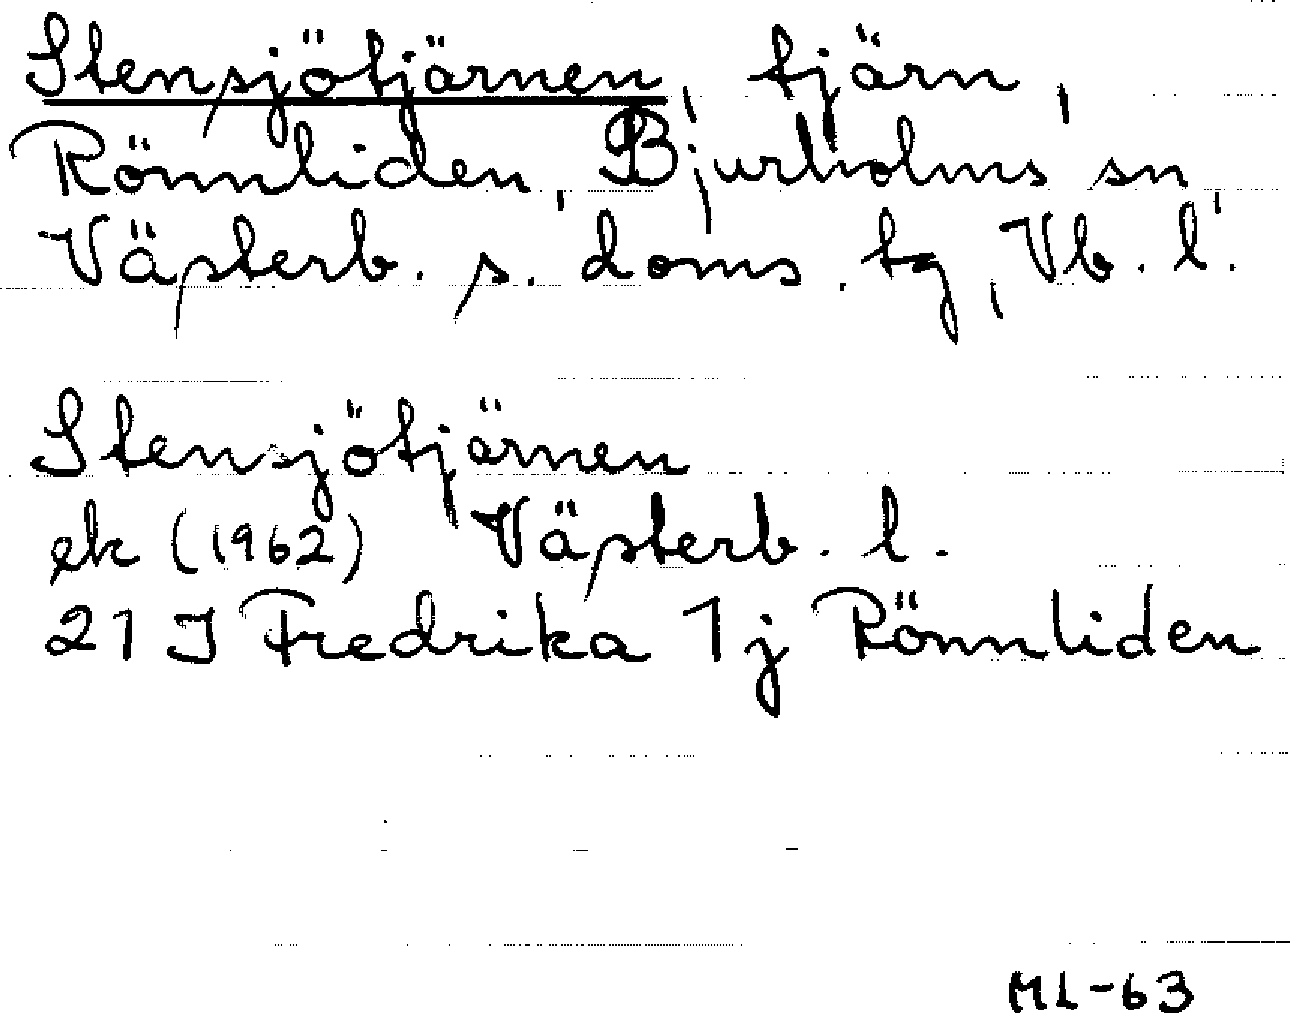 Stensjötjärnen, tjärn,
Rönnliden, Bjurholms sn,
Västerb. s. doms. tg, Vb. l.
Stensjötjärnen
ek (1962) Västerb. l.
21 J Fredrika 1j Rönnliden
ML-63